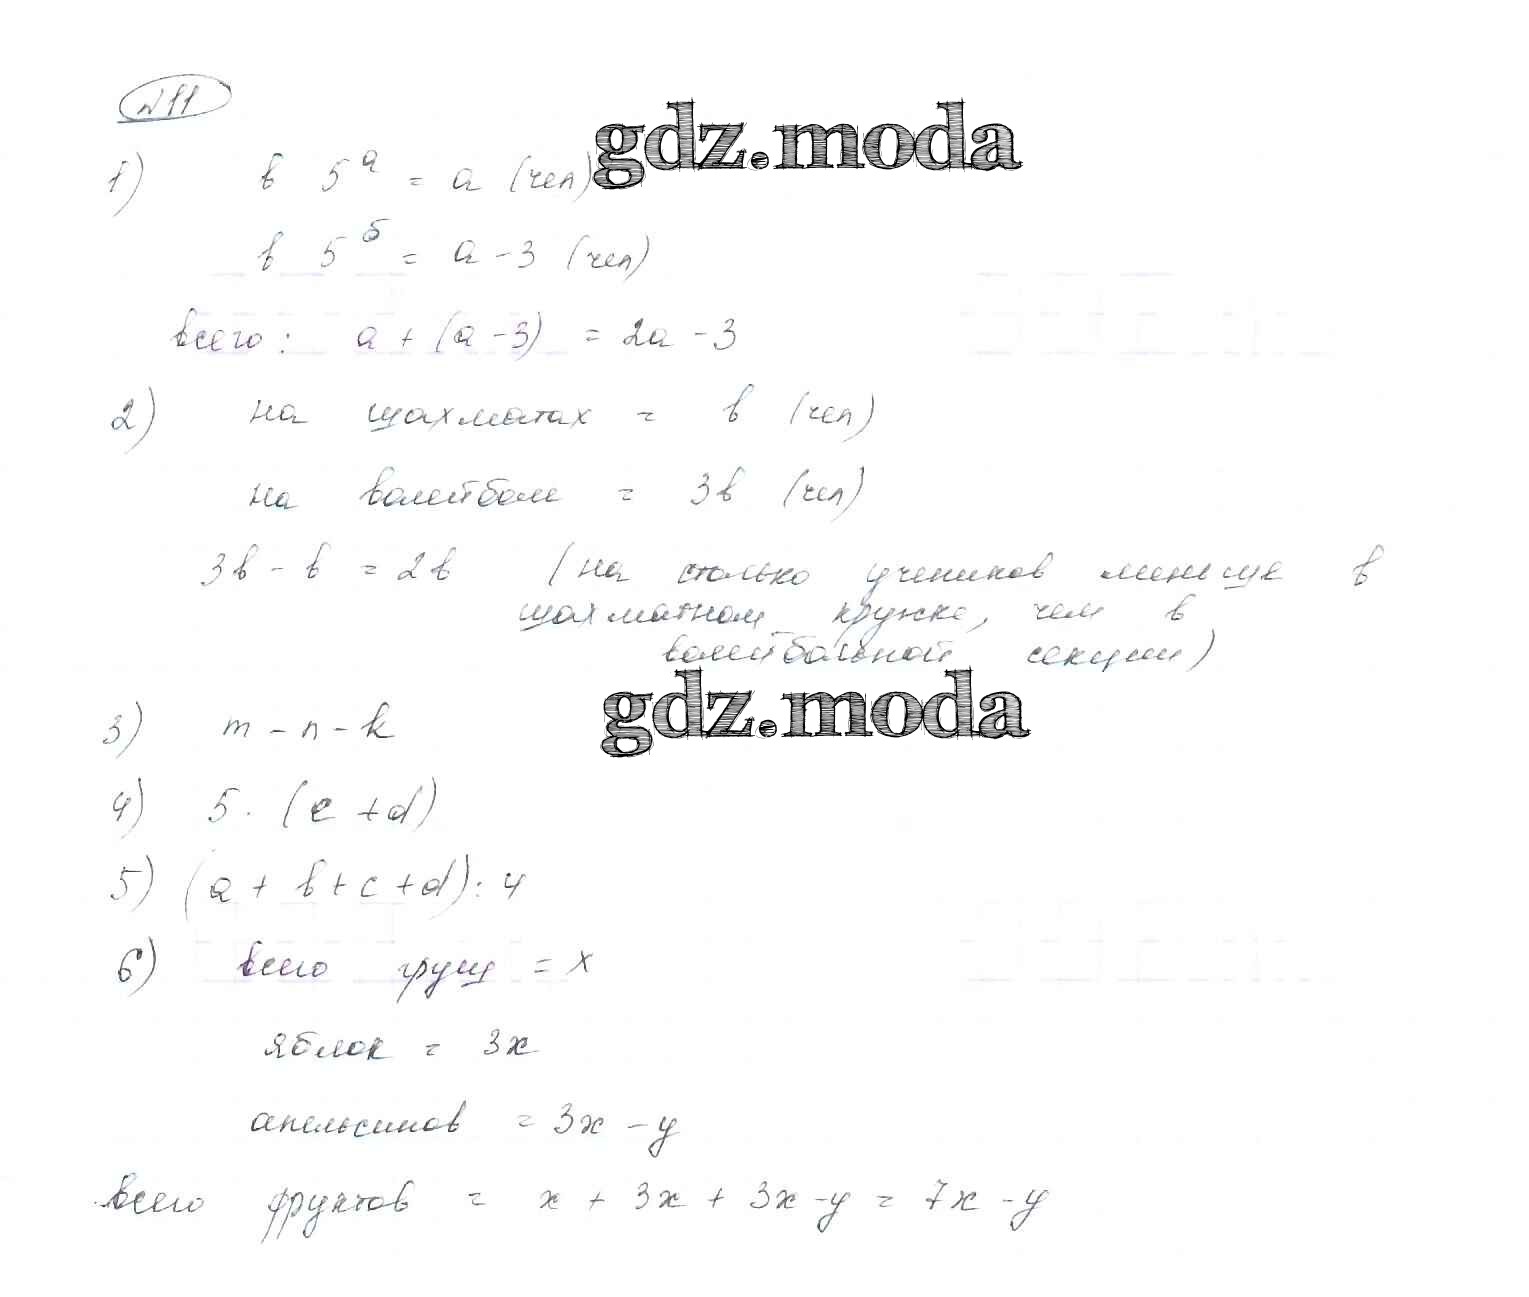 №11
gdz.moda
1) в 5ᵃ = a (чел)
в 5ᵇ = a - 3 (чел)
всего: a + (a - 3) = 2a - 3
2) на шахматах = в (чел)
на волейболе = 3в (чел)
3в - в = 2в (на столько учеников меньше в
шахматном кружке, чем в
волейбольной секции)
gdz.moda
3) m - n - k
4) 5 · (c + d)
5) (a + в + c + d) : 4
6) всего груш = x
яблок = 3x
апельсинов = 3x - y
всего фруктов = x + 3x + 3x - y = 7x - y